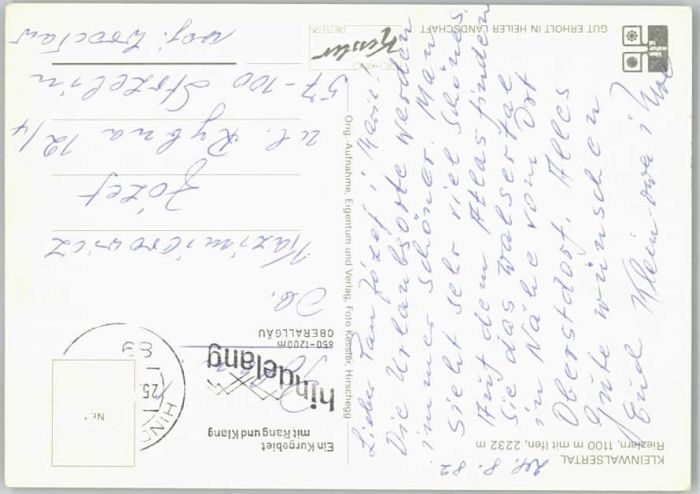 KLEINWALSERTAL
Riezlern, 1100 m mit Ifen, 2232 m
8. 82.
Lieber Pan Józef i Maria!
Die Urlaubsorte werden
immer schöner. Man
sieht sehr viel Schönes.
Auf dem Atlas finden
Sie das Walsertal
in Nähe vom Ort
Oberstdorf. Alles
Gute wünschen
Orig.-Aufnahme, Eigentum und Verlag, Foto Kessler, Hirschegg
Ein Kurgebiet
mit Rang und Klang
hindelang
850-1200m
OBERALLGÄU
HIN
25.
89
Nr.
Kazimierowicz
Józef
ul. Rybna 12/4
57-100 Strzelin
woj. Wrocław
Kessler
RIEZLERN
GUT ERHOLT IN HEILER LANDSCHAFT